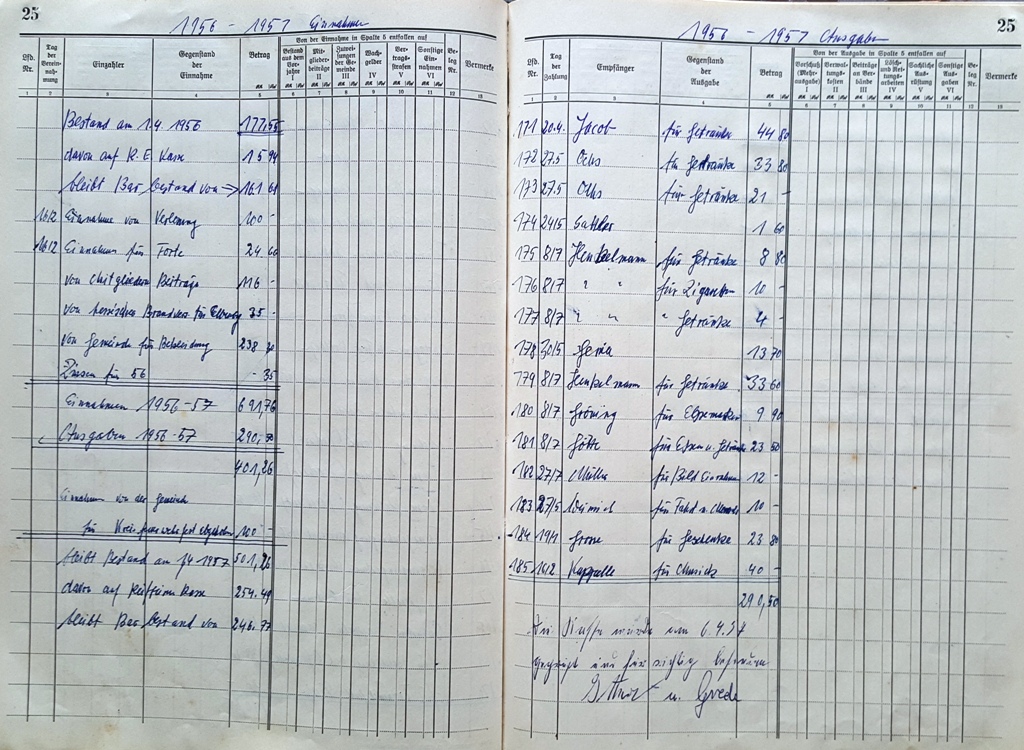 25
1956 - 1957 Einnahmen
Lfd. Nr.
Tag der Vereinnahmung
Einzahler
Gegenstand der Einnahme
Betrag
Von der Einnahme in Spalte 5 entfallen auf
Bestand aus dem Vorjahre I
Mitgliederbeiträge II
Zuweisungen der Gemeinde III
Wachgelder IV
Vertragsstrafen V
Sonstige Einnahmen VI
Beleg Nr.
Vermerke
1 2 3 4 5 6 7 8 9 10 11 12 13
Bestand am 1.4. 1956 177,55
davon auf R. E. Kasse 15 94
bleibt Bar bestand von → 161 61
16/2 Einnahme von Verlosung 100 -
16/2 Einnahme für Torte 24 60
von Mitgliedern Beiträge 116 -
von hessischen Brandkasse für 35 -
von Gemeinde für Bekleidung 238
Zinsen für 56 - 35
Einnahmen 1956-57 691,76
Ausgaben 1956-57 290,50
401,26
Einnahmen von der Gemeinde
für Kreisfeuerwehrfest abgehoben 100 -
bleibt Bestand am 1/4 1957 501,26
davon auf Reiffeisen Kasse 254.49
bleibt Bar bestand von 246.77
25
1956 - 1957 Ausgaben
Lfd. Nr.
Tag der Zahlung
Empfänger
Gegenstand der Ausgabe
Betrag
Von der Ausgabe in Spalte 5 entfallen auf
Vorschuß (Mehrausgabe) I
Verwaltungskosten II
Beiträge an Verbände III
Lösch- und Rettungsarbeiten IV
Sachliche Ausrüstung V
Sonstige Ausgaben VI
Beleg Nr.
Vermerke
1 2 3 4 5 6 7 8 9 10 11 12 13
171 20.4. Jacob für Getränke 44 80
172 27.5 Ochs für Getränke 33 80
173 27.5 Ochs für Getränke 21 -
174 24/5 Sattler 1 60
175 8/7 Henkelmann für Getränke 8 80
176 8/7 " " für Zigaretten 10 -
177 8/7 " " " Getränke 4 -
178 30/5 13 70
179 8/7 Henkelmann für Getränke 33 60
180 8/7 Gröning für Essenmarken 9 90
181 8/7 Götte für Essen u. Getränke 23 50
182 27/7 Müller für Bild Einrahmen 12 -
183 27/5 für Fahrt n. 10 -
184 19/1 Grosse für Geschenke 23 80
185 16/2 Kappelle für Musick 40 -
290,50
Die Kasse wurde am 6.4.57
geprüft und für richtig befunden
u. Grede